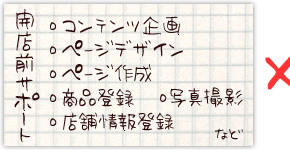 開店前サポート
○コンテンツ企画
○ページデザイン
○ページ作成
○商品登録 ○写真撮影
○店舗情報登録
など